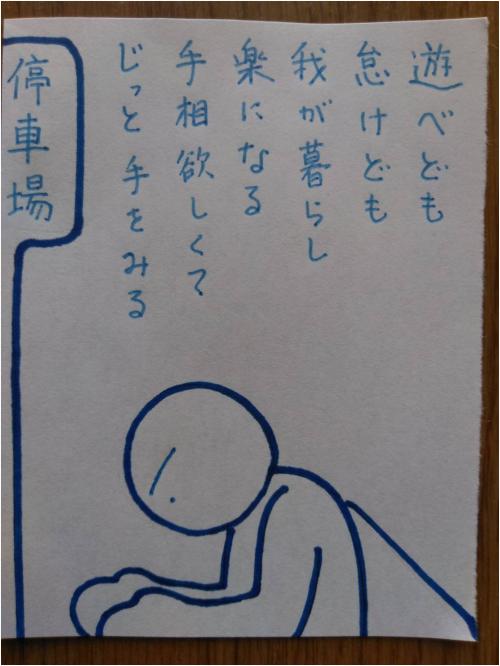 遊べども
怠けども
我が暮らし
楽になる
手相欲しくて
じっと手をみる
停車場